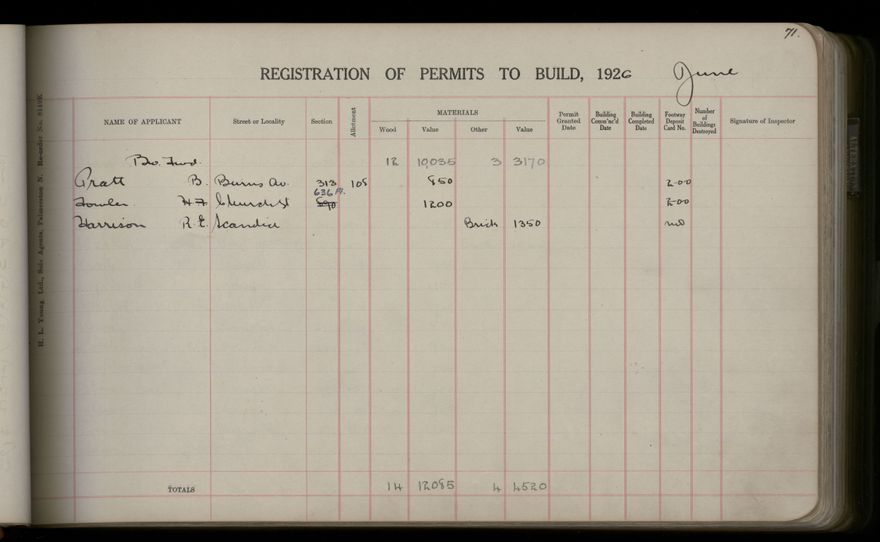 71.
REGISTRATION OF PERMITS TO BUILD, 1926 June
NAME OF APPLICANT Street or Locality Section Allotment MATERIALS Wood Value Other Value Permit Granted Date Building Comm'nc'd Date Building Completed Date Footway Deposit Card No. Number of Buildings Destroyed Signature of Inspector
Bro. Fwd. 12 10035 3 3170
Pratt B. Burns Av. 313 108 850 2-0-0
636 Pt.
Fowler H F Church St 690 1200 2-0-0
Harrison R E. Scandia Brick 1350 no
TOTALS 14 12085 4 4520
H. L. Young Ltd., Sole Agents, Palmerston N. Re-order No. 8149K